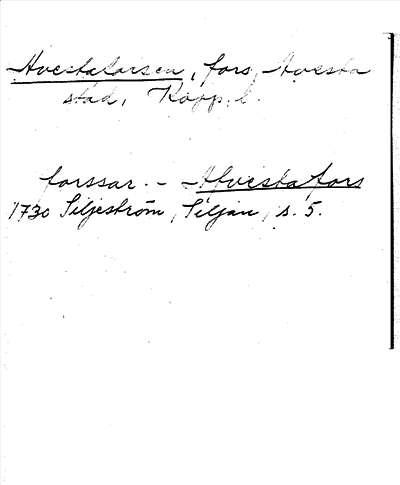 Avestaforsen, fors, Avesta
stad, Kopp. l.
forssar. - Afvesta fors
1730 Siljeström, Siljan, s. 5.